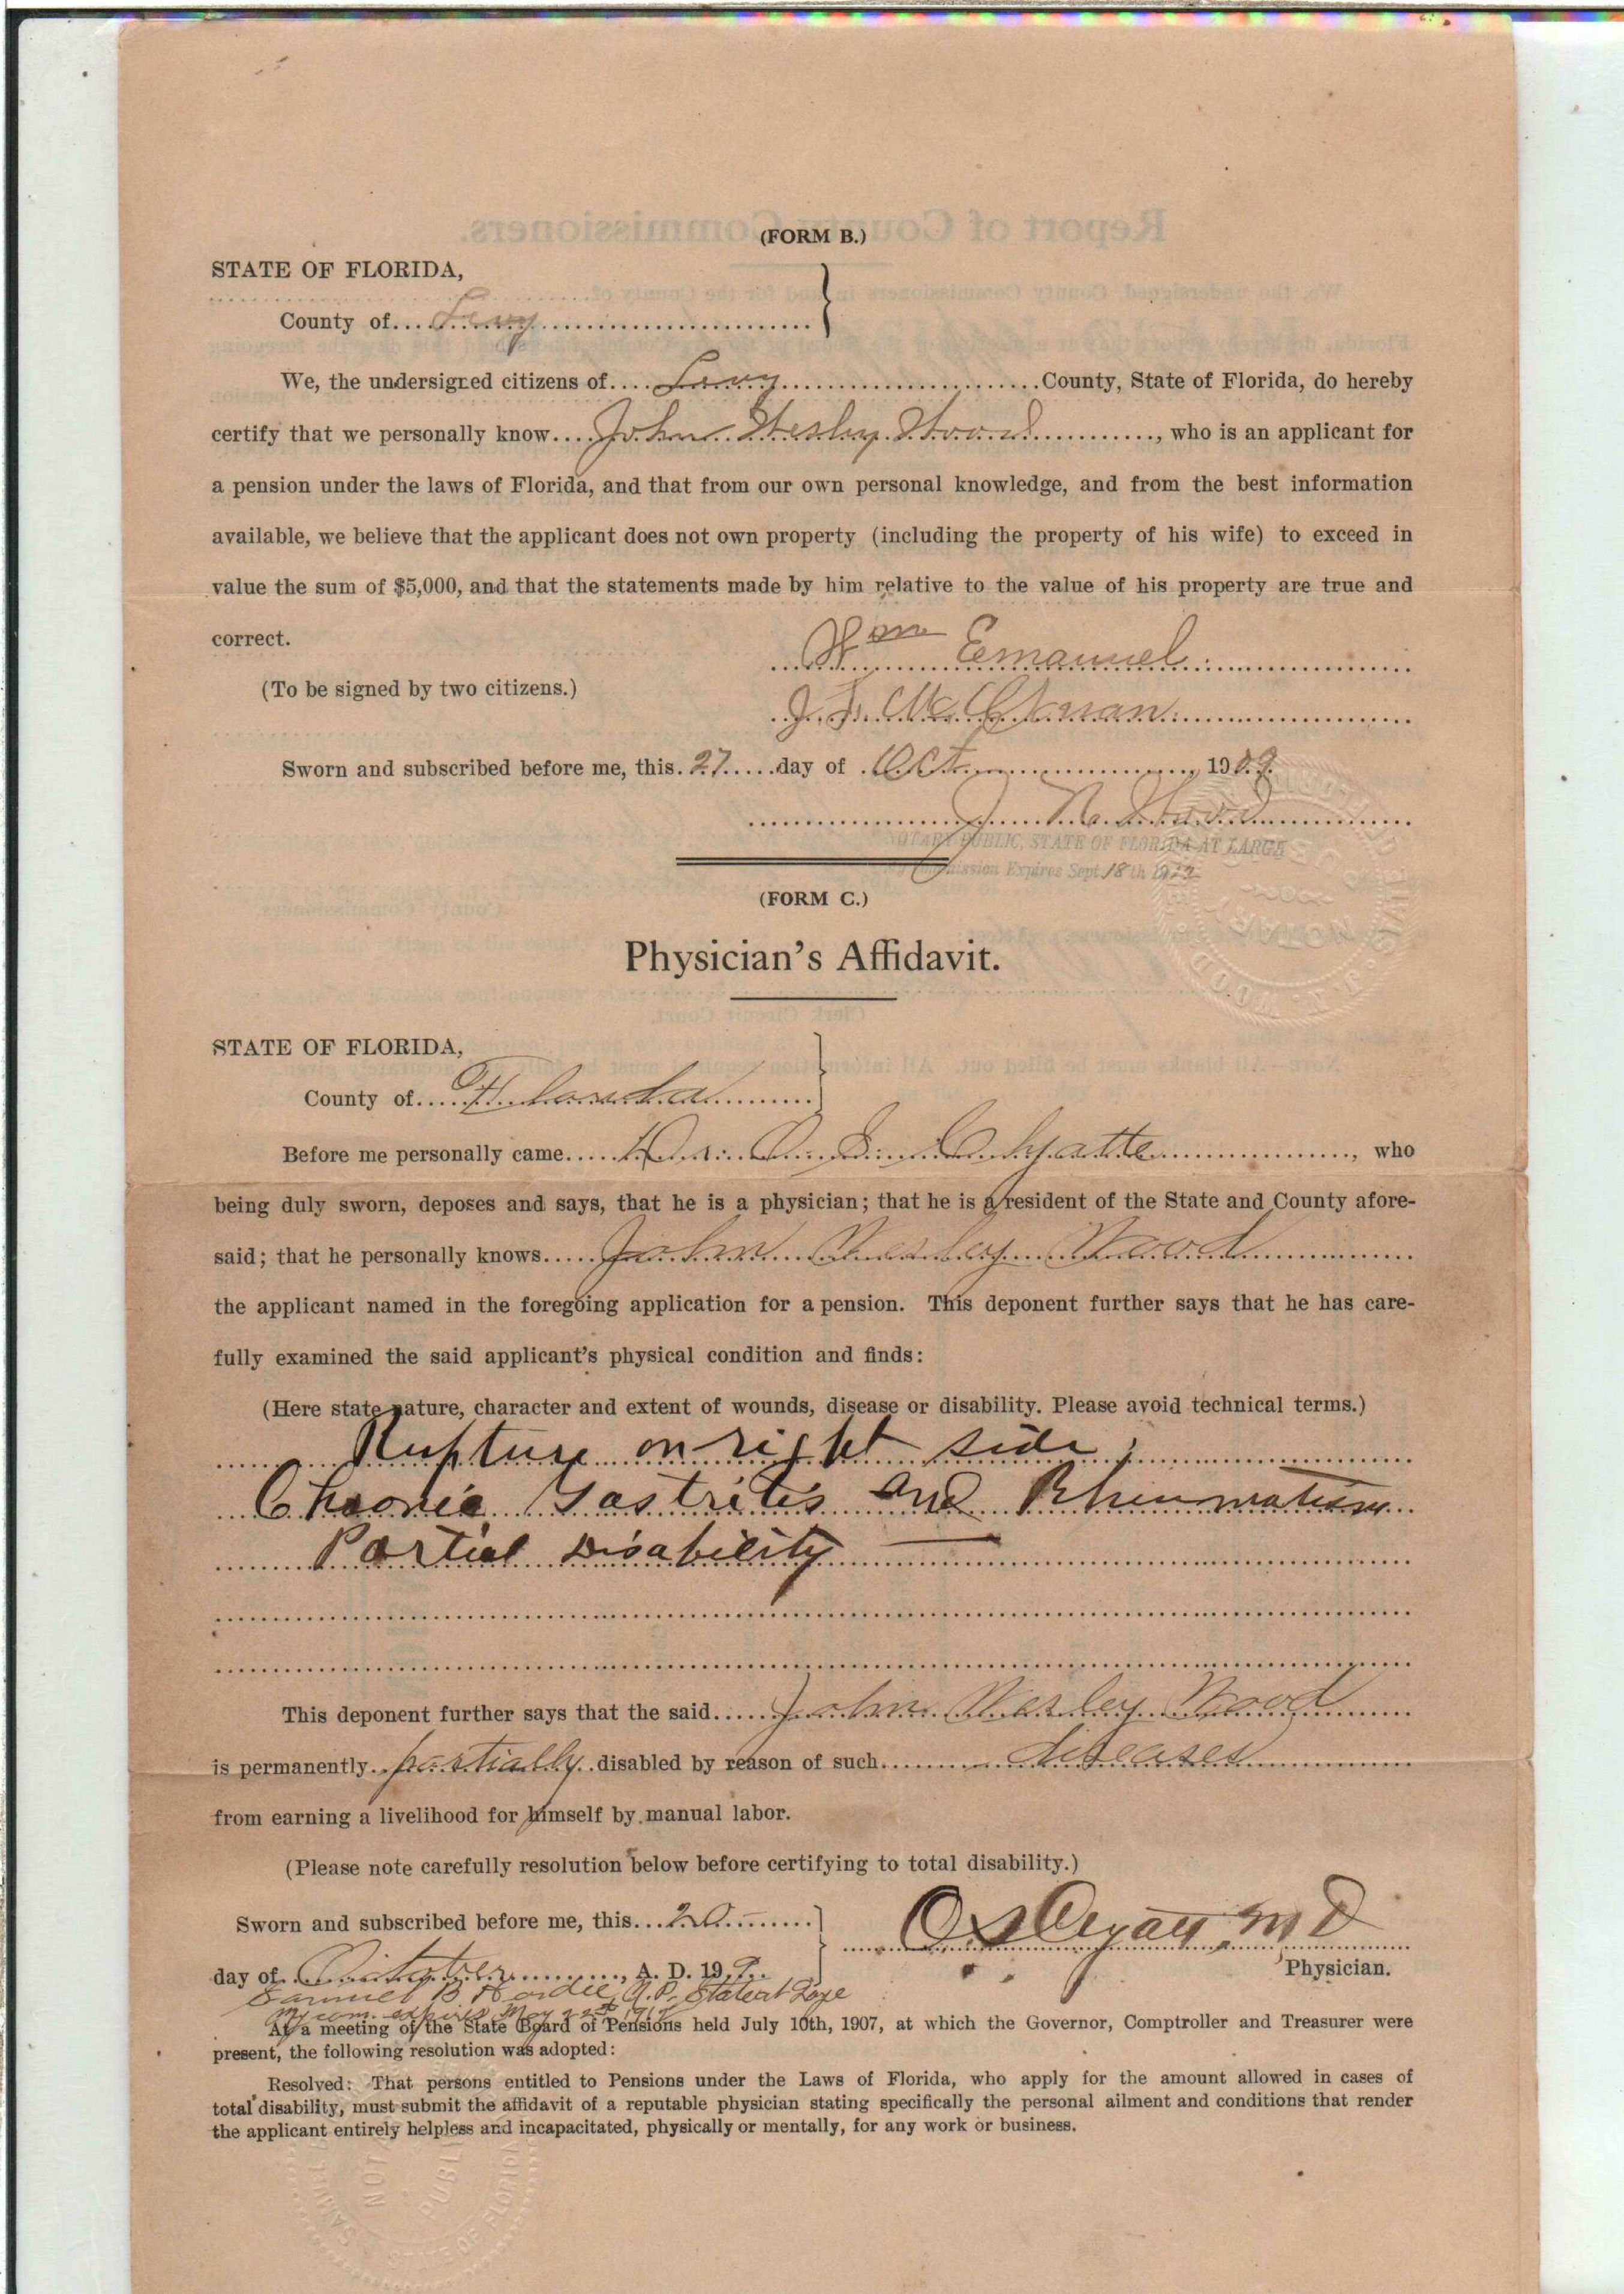 (FORM B.)
STATE OF FLORIDA,
County of Levy
We, the undersigned citizens of Levy County, State of Florida, do hereby
certify that we personally know John Wesley Wood, who is an applicant for
a pension under the laws of Florida, and that from our own personal knowledge, and from the best information
available, we believe that the applicant does not own property (including the property of his wife) to exceed in
value the sum of $5,000, and that the statements made by him relative to the value of his property are true and
correct.
Wm Emanuel
(To be signed by two citizens.)
J.
Sworn and subscribed before me, this 27 day of Oct, 1909.
J. N. Wood
NOTARY PUBLIC, STATE OF FLORIDA AT LARGE
My Commission Expires Sept 18th
(FORM C.)
Physician's Affidavit.
STATE OF FLORIDA,
County of
Before me personally came Dr., who
being duly sworn, deposes and says, that he is a physician; that he is a resident of the State and County afore-
said; that he personally knows John Wesley Wood
the applicant named in the foregoing application for a pension. This deponent further says that he has care-
fully examined the said applicant's physical condition and finds:
(Here state nature, character and extent of wounds, disease or disability. Please avoid technical terms.)
Rupture on right side;
Chronic Gastritis and Rheumatism
Partial Disability —
This deponent further says that the said John Wesley Wood
is permanently partially disabled by reason of such diseases
from earning a livelihood for himself by manual labor.
(Please note carefully resolution below before certifying to total disability.)
Sworn and subscribed before me, this 20
M D
day of October, A. D. 199.
Physician.
Samuel B N.P. State at Large
My com. expires May 22nd
At a meeting of the State Board of Pensions held July 10th, 1907, at which the Governor, Comptroller and Treasurer were
present, the following resolution was adopted:
Resolved: That persons entitled to Pensions under the Laws of Florida, who apply for the amount allowed in cases of
total disability, must submit the affidavit of a reputable physician stating specifically the personal ailment and conditions that render
the applicant entirely helpless and incapacitated, physically or mentally, for any work or business.